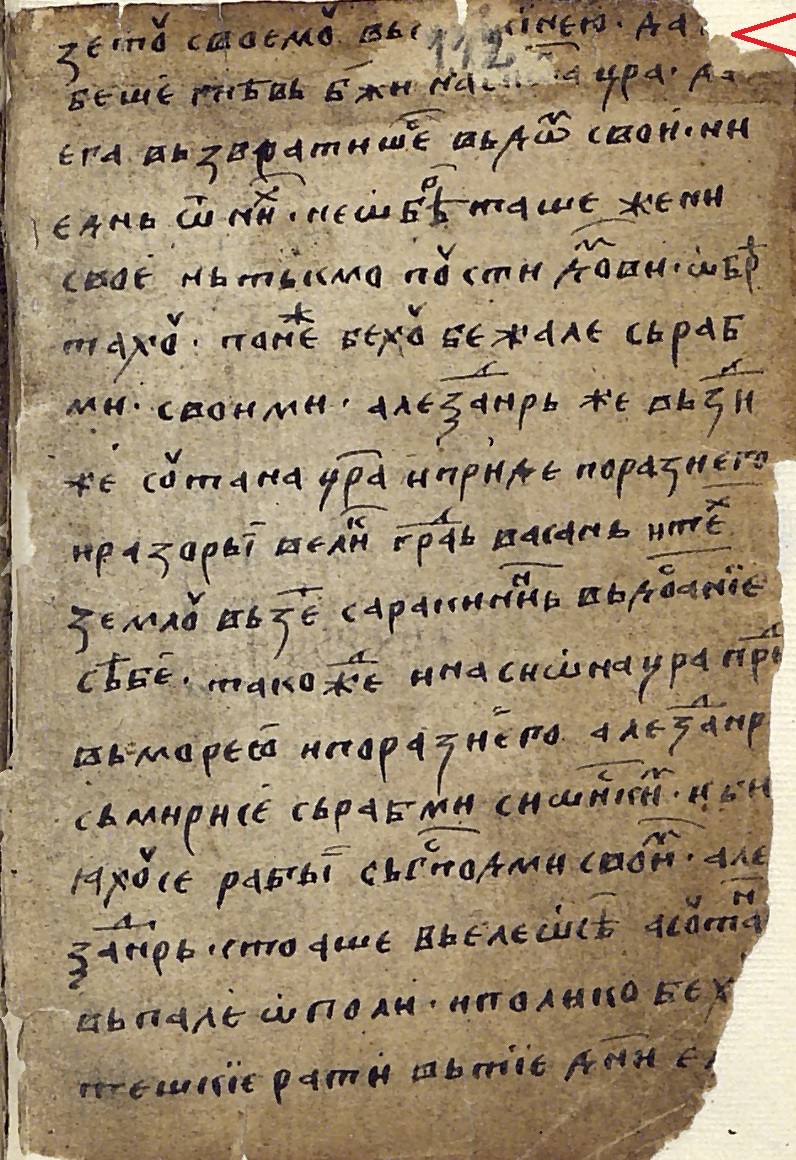 зетꙋ своемꙋ вьс кїнею · да
беше гнѣвь бжи на цра · да
ега вьзвратише вь дѡⷨ свои · ни
еднь ѿ ниⷯ · не ѡбрѣташе жени
свое нь тькмо пꙋсти домⷨови · ѡбрⷮ
тахꙋ · понеⷤ бехꙋ бежале сь раб
ми · своими · алеѯаⷩрь же вьзⷣи
же сꙋтана цра и приде порази его
и разори велиⷦ граⷣь васань и теⷯ
землꙋ вьзеⷮ саракиниⷩь вь дⷭоанїе
сьⷮбе · такожеⷣ и на сиѡна цра прⷣи
вь мореѡ и порази его алеѯаⷣнр
сьмири се сь раб ми сиѡнⷭкиⷨ · и би
ꙗхꙋ се раби сь гⷭподми своиⷨ · але
ѯаⷣнрь · стоаше вь елеѡсѣ а сꙋтаⷩ
вь пале ѡполи · и толико бех
тешкїе рати вь тїе дни е